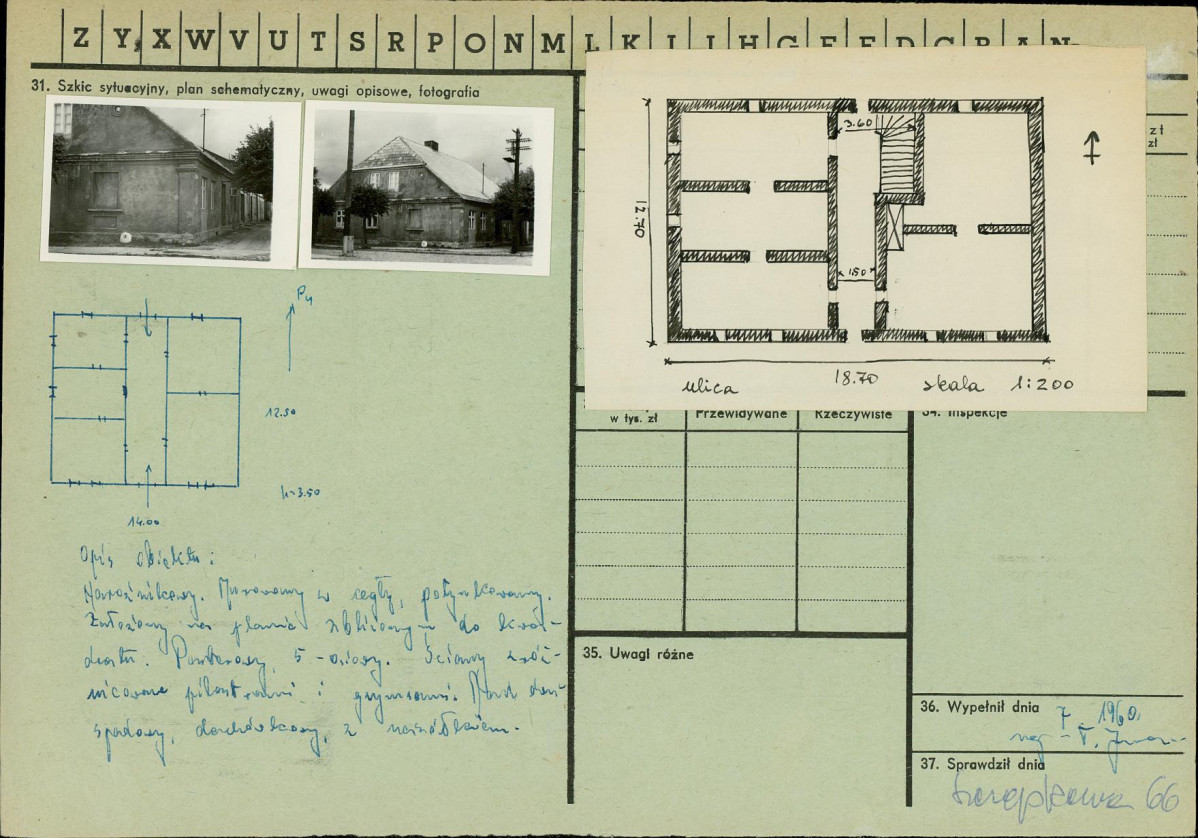 Z Y X W V U T S R P O N M L K J I H G F E D C B A Nr
31. Szkic sytuacyjny, plan schematyczny, uwagi opisowe, fotografia
zł
zł
3.60
12.70
1.50
ulica 18.70 skala 1:200
Pn
12.50
h=3.50
14.00
Opis obiektu:
Narożnikowy. Murowany z cegły, potynkowany.
Założony na planie zbliżonym do kwa-
dratu. Parterowy, 5-osiowy. Ściany zróż-
nicowane pilastrami i gzymsami. Dach dwu-
spadowy, dachówkowy, z naczółkiem.
w tys. zł
Przewidywane
Rzeczywiste
34. Inspekcje
35. Uwagi różne
36. Wypełnił dnia
7. 1960.
mgr T.
37. Sprawdził dnia
66